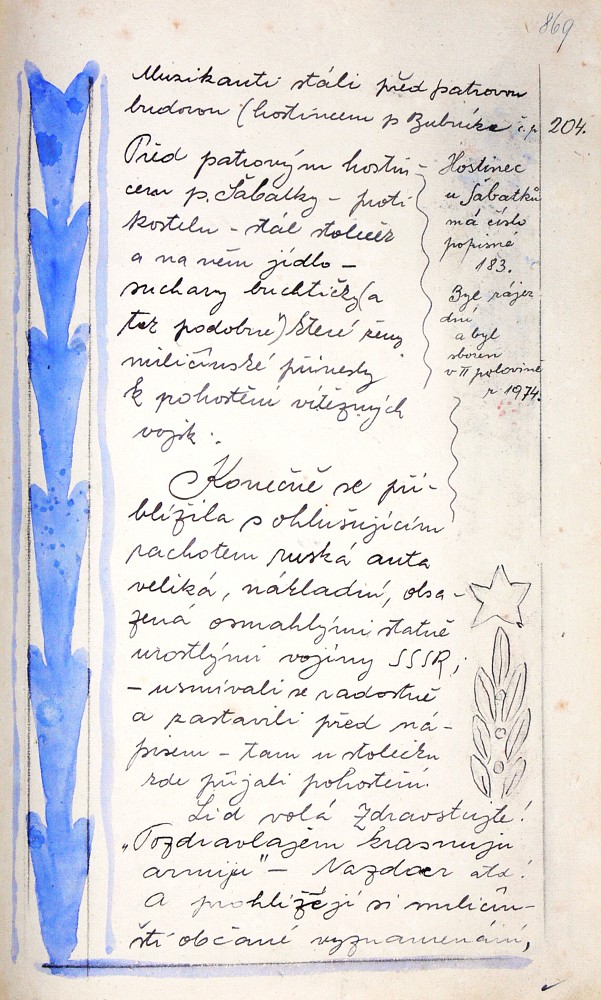 869
Muzikanti stáli před patrovou
budovou (hostincem p Bubníka č.p 204.
Před patrovým hostin-
cem p. Šabatky - proti
kostelu - stál stoleček
a na něm jídlo -
suchary buchtičky (a
též podobné) které ženy
miličínské přinesly
k pohoštění vítězných
vojsk.
Hostinec
u Šabatků
má číslo
popisné
183.
Byl zájez
dní
a byl
zbořen
v II polovině
r 1974.
Konečně se při-
blížila s ohlušujícím
rachotem ruská auta
veliká, nákladní, obsa-
zená osmahlými statně
urostlými vojíny SSSR;
- usmívali se radostně
a zastavili před ná-
pisem - tam u stolečku
zde přijali pohoštění.
Lid volá Zdravstvujte!
"Pozdravlajem krasnuju
armiju" - Nazdar atd!
A prohlížejí si miličín-
ští občané vyznamenání,